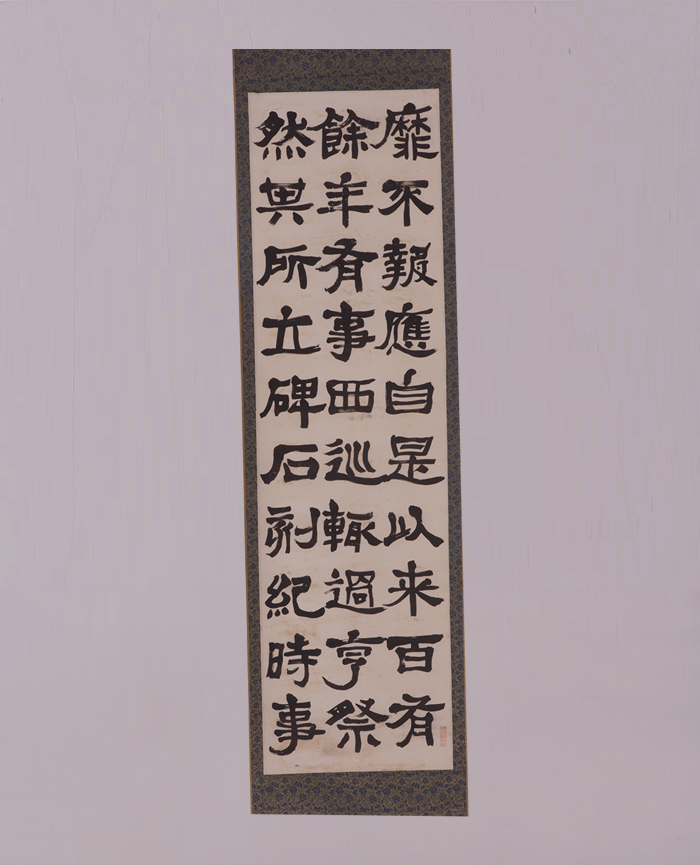 靡不報應自是以来百有
餘年有事西巡輒過亨祭
然其所立碑石刻紀時事